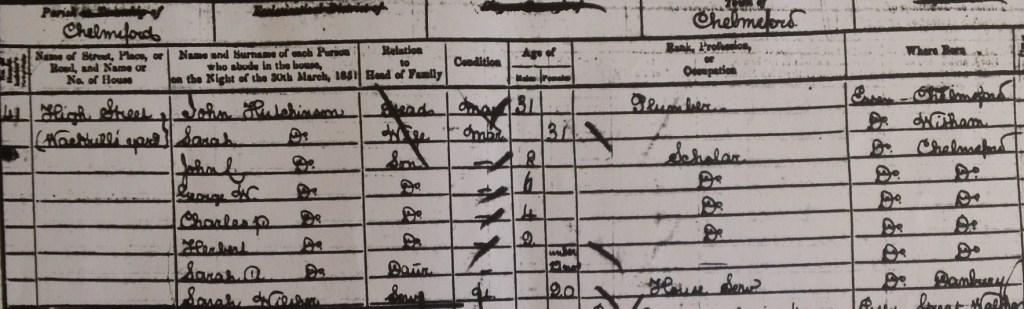 Parish or Township of Ecclesiastical District of Town of
Chelmsford Chelmsford
Name of Street, Place, or Road, and Name or No. of House
Name and Surname of each Person who abode in the house, on the Night of the 30th March, 1851
Relation to Head of Family
Condition
Age of
Males Females
Rank, Profession, or Occupation
Where Born
41 High Street John Hutchinson Head Mar 31 Plumber Essex - Chelmsford
yard) Sarah Do Wife Mar 31 Do Witham
John Do Son - 8 Scholar Do Chelmsford
George W. Do Do - 6 Do Do Do
Charles Do Do - 4 Do Do Do
Herbert Do Do - 2 Do Do Do
Sarah Do Daur - under Do Do
Sarah Serv 20 House Serv Do Danbury